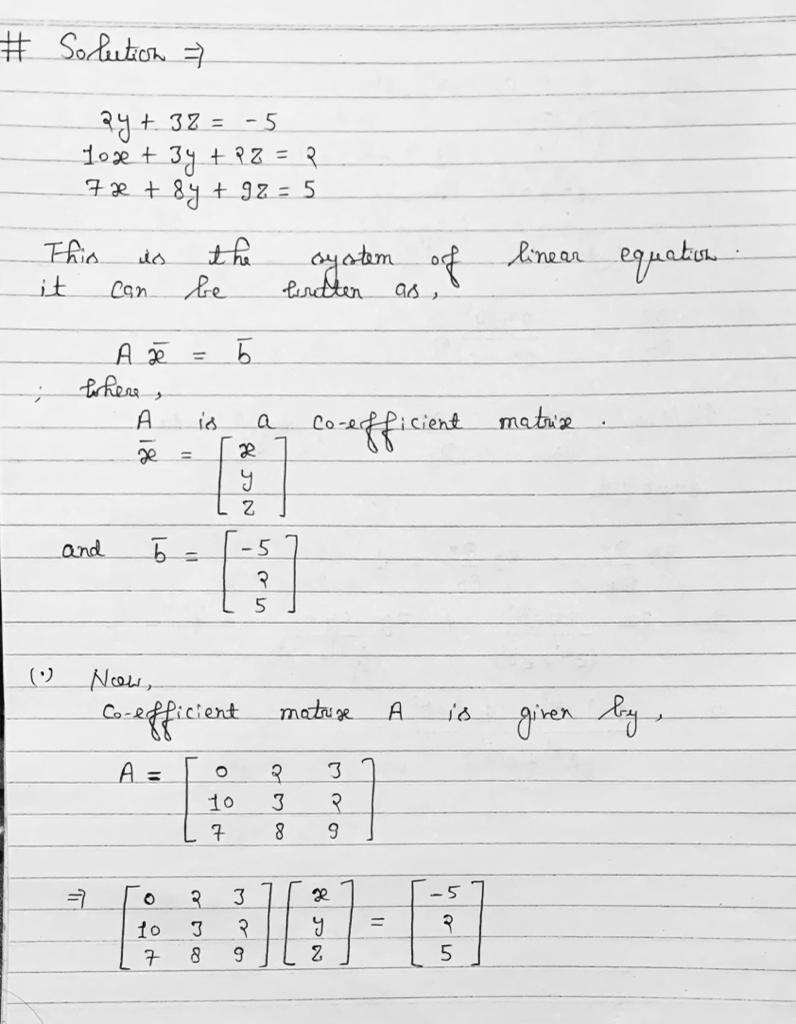 # Solution ⇒
2y + 3z = -5
10x + 3y + 2z = 2
7x + 8y + 9z = 5
This is the system of linear equation.
it can be written as,
A x̄ = b̄
; where,
A is a co-efficient matrix.
x̄ = [ x
y
z ]
and b̄ = [ -5
2
5 ]
(•) Now,
Co-efficient matrix A is given by,
A = [ 0 2 3
10 3 2
7 8 9 ]
⇒ [ 0 2 3 ] [ x ] = [ -5 ]
[ 10 3 2 ] [ y ] = [ 2 ]
[ 7 8 9 ] [ z ] [ 5 ]